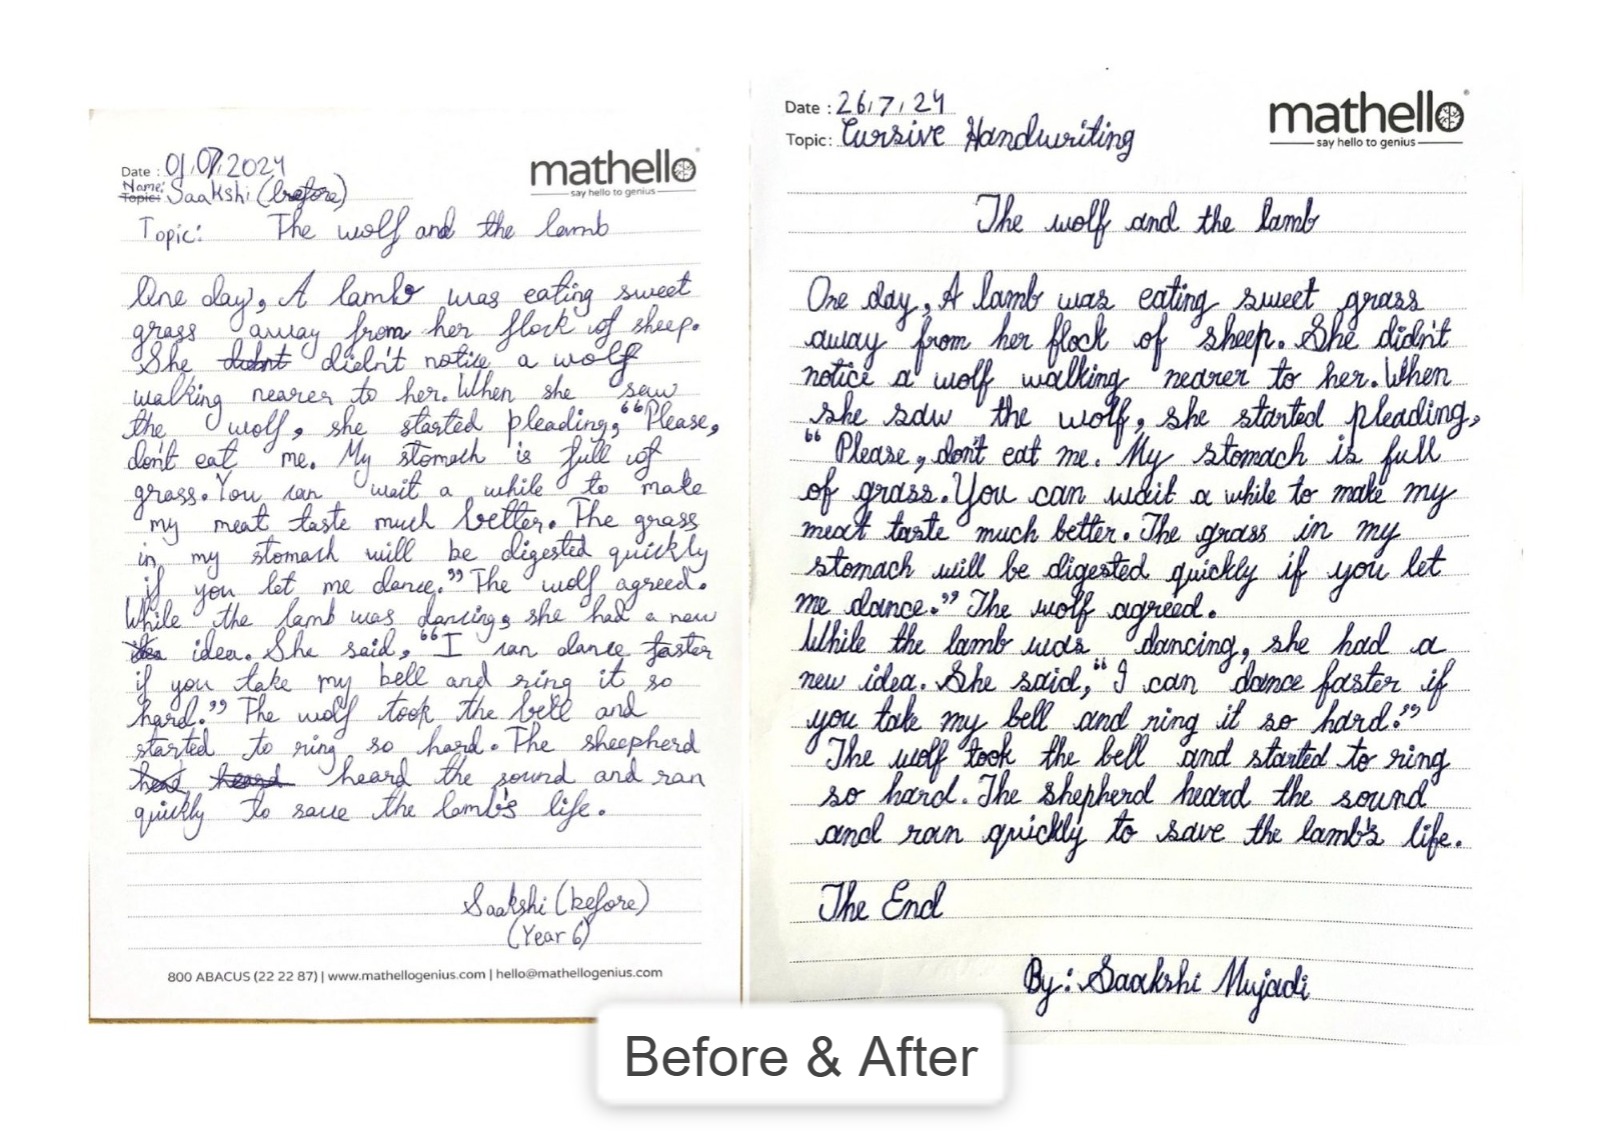 Date : 01.07.2024
mathello
say hello to genius
Name:
Topic: Saakshi (before)
Topic: The wolf and the lamb
One day, A lamb was eating sweet
grass away from her flock of sheep.
She didnt didn't notice a wolf
walking nearer to her. When she saw
the wolf, she started pleading, "Please,
don't eat me. My stomach is full of
grass. You can wait a while to make
my meat taste much better. The grass
in my stomach will be digested quickly
if you let me dance." The wolf agreed.
While the lamb was dancing, she had a new
idea. She said, "I can dance faster
if you take my bell and ring it so
hard." The wolf took the bell and
started to ring so hard. The sheepherd
heard heard the sound and ran
quickly to save the lamb's life.
Saakshi (before)
(Year 6)
800 ABACUS (22 22 87) | www.mathellogenius.com | hello@mathellogenius.com
Date : 26/7/24
Topic: Cursive Handwriting
mathello
say hello to genius
The wolf and the lamb
One day, A lamb was eating sweet grass
away from her flock of sheep. She didn't
notice a wolf walking nearer to her. When
she saw the wolf, she started pleading,
"Please, don't eat me. My stomach is full
of grass. You can wait a while to make my
meat taste much better. The grass in my
stomach will be digested quickly if you let
me dance." The wolf agreed.
While the lamb was dancing, she had a
new idea. She said, "I can dance faster if
you take my bell and ring it so hard."
The wolf took the bell and started to ring
so hard. The shepherd heard the sound
and ran quickly to save the lamb's life.
The End
By: Saakshi Mujadi
Before & After